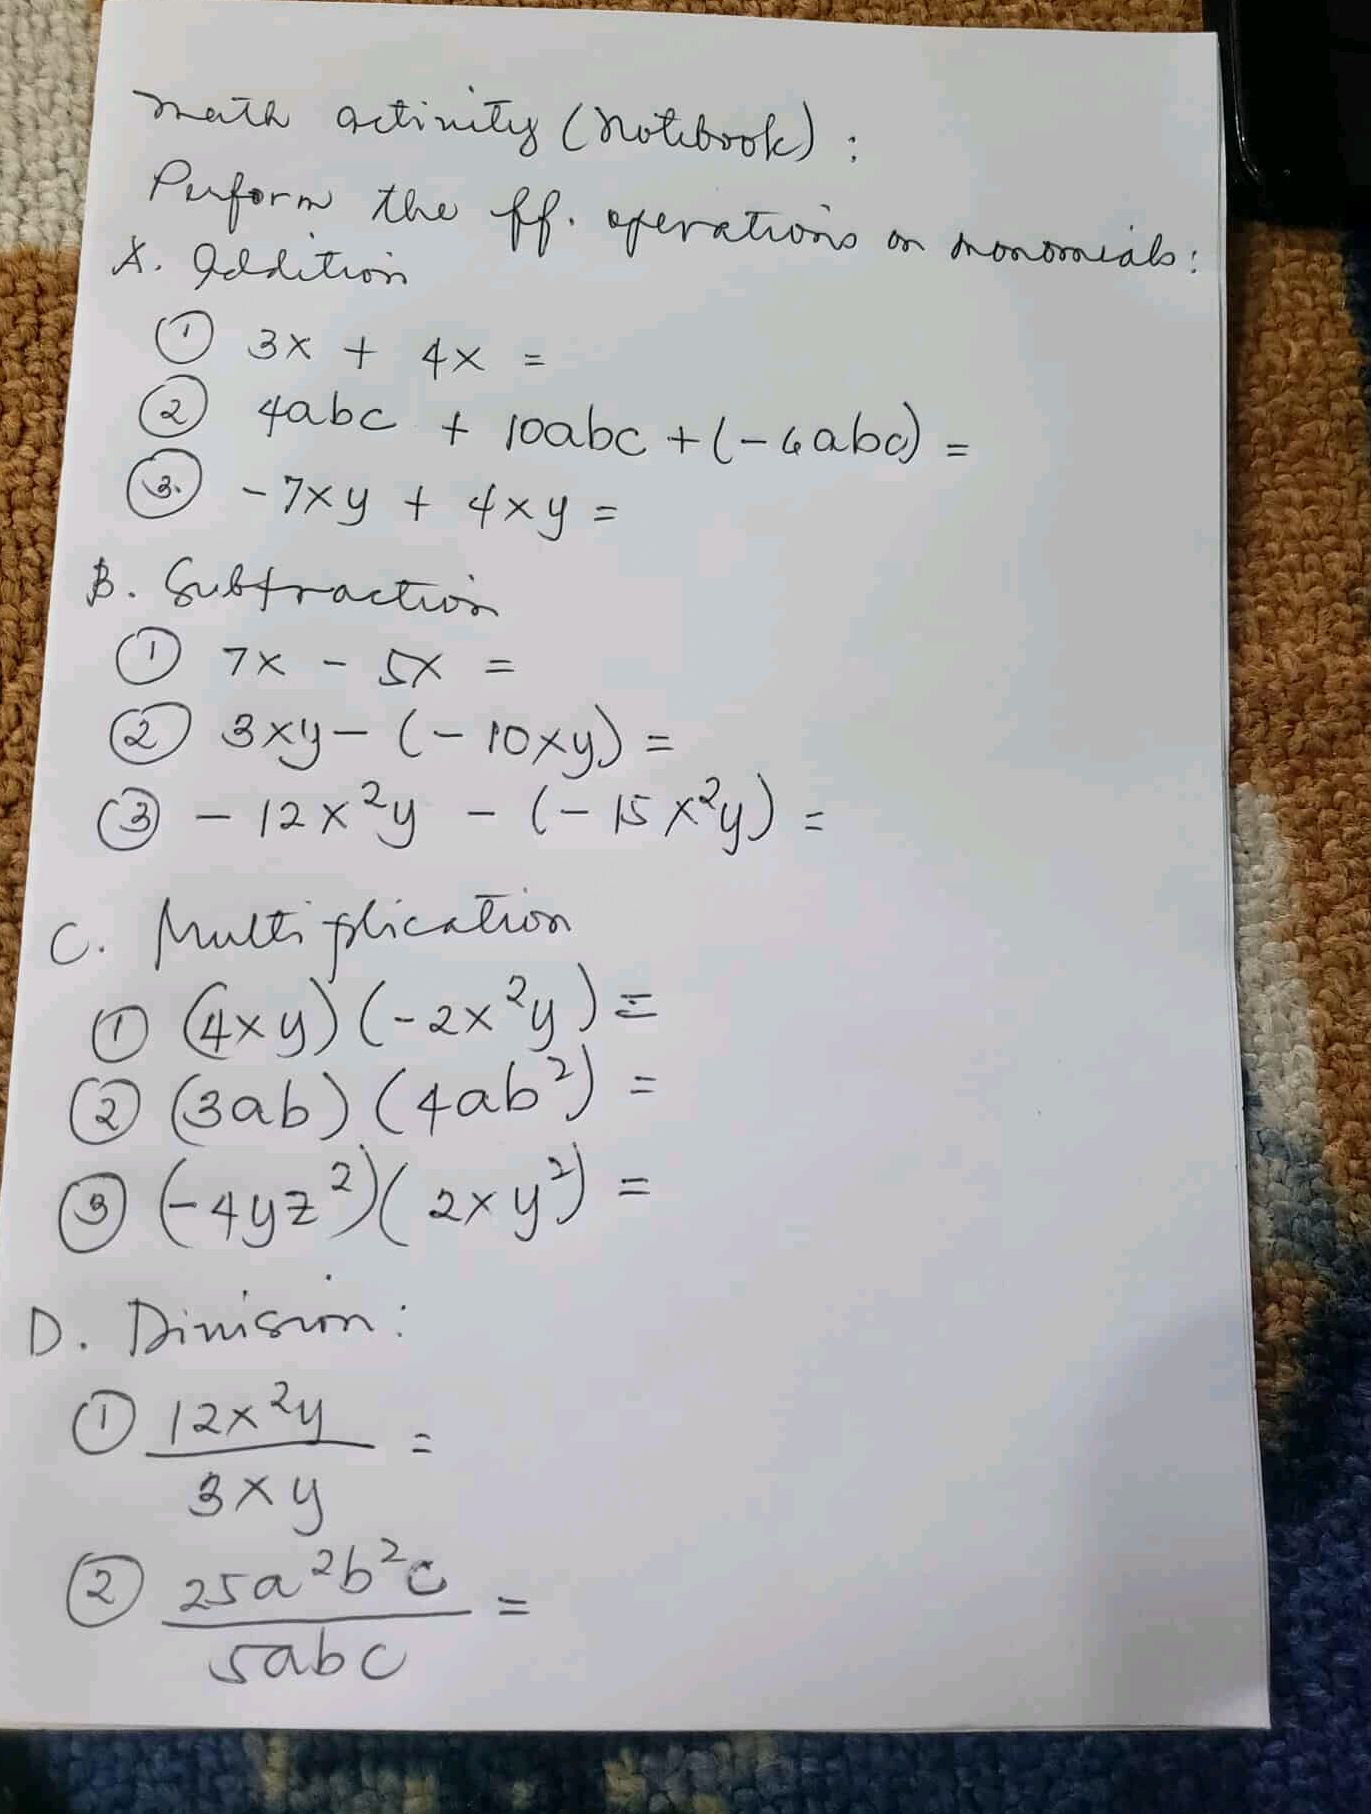 Math activity (notebook) :
Perform the ff. operations on monomials:
A. Addition
① 3x + 4x =
② 4abc + 10abc + (-6abc) =
③ -7xy + 4xy =
B. Subtraction
① 7x - 5x =
② 3xy - (-10xy) =
③ -12x²y - (-15x²y) =
C. Multiplication
① (4xy)(-2x²y) =
② (3ab)(4ab²) =
③ (-4yz²)(2xy²) =
D. Division:
① 12x²y =
3xy
② 25a²b²c =
5abc